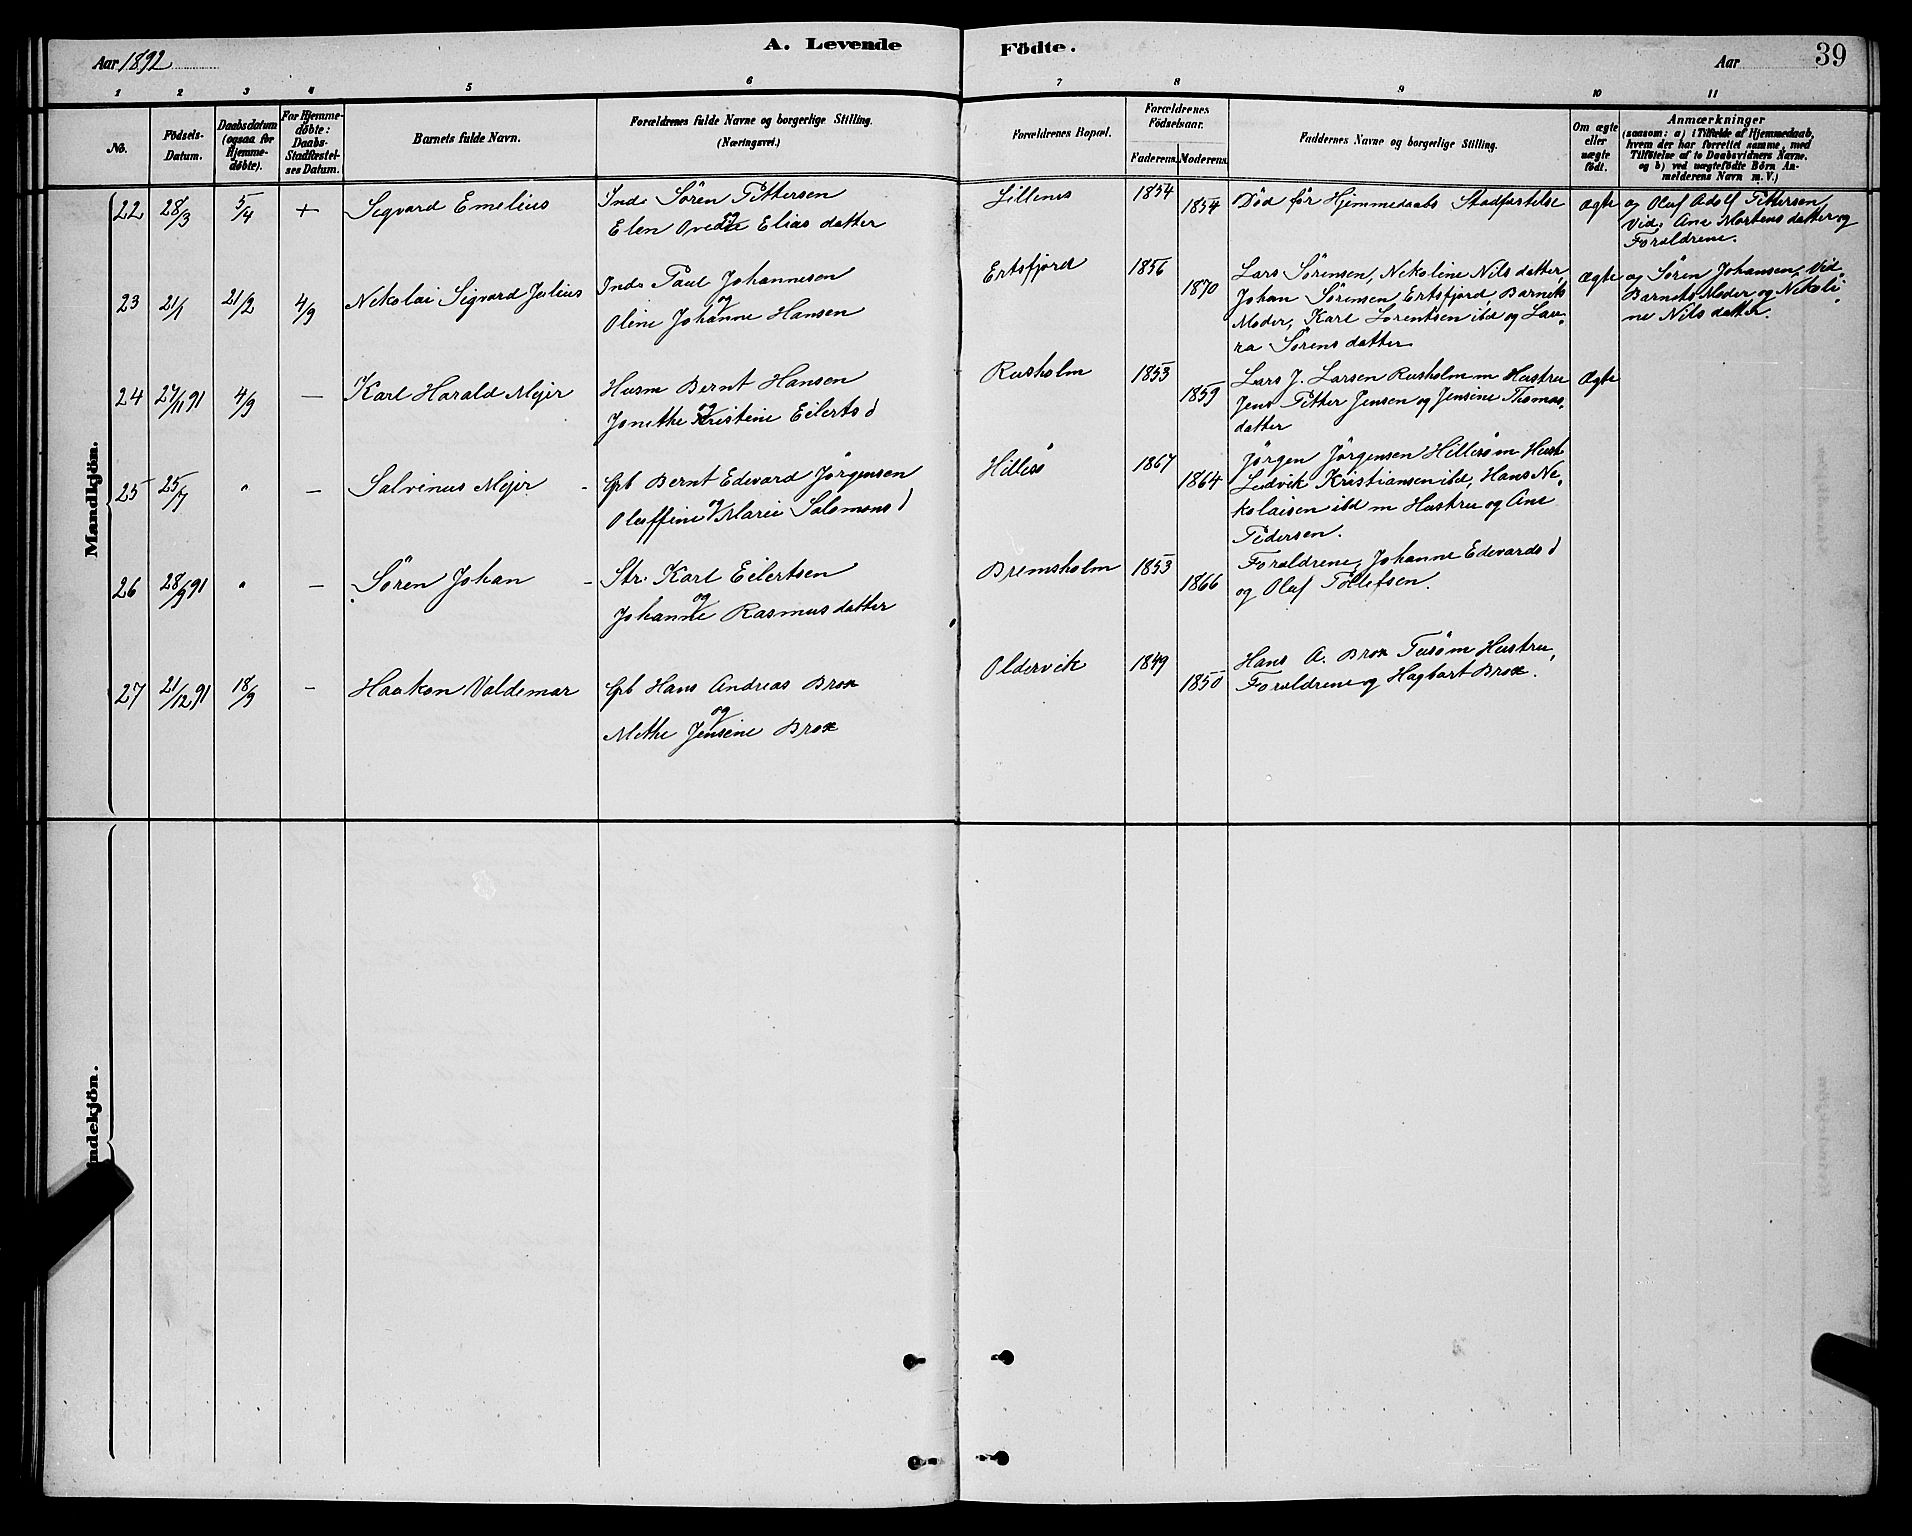 Aar 1892
A. Levende Födte.
Aar
39
1 2 3 4 5 6 7 8 9 10 11
No.
Födsels-
Datum.
Daabsdatum
(ogsaa for
Hjemme-
døbte).
For Hjemme-
døbte:
Daabs-
Stadfæstel-
ses Datum.
Barnets fulde Navn.
Forældrenes fulde Navne og borgerlige Stilling.
(Næringsvei.)
Forældrenes Bopæl.
Forældrenes
Födselsaar.
Faderens. Moderens.
Faddernes Navne og borgerlige Stilling.
Om ægte
eller
uægte
födt.
Anmærkninger
(saasom: a) i Tilfælde af Hjemmedaab,
hvem der har forrettet samme, med
Tilføielse af to Daabsvidners Navne.
og b) ved uægtefödte Börn An-
melderens Navn m. V.)
Mandkjön.
22 28/3 5/4 + Sigvard Emelius
Ind. Sören Pettersen
og
Elen Ovedie Elias datter
Lillenes 1854
1854
Død før Hjemmedaabs Stadfæstelse
Ægte
af Oluf Adolf Pettersen
Vid. Ane Mortens datter og
Forældrene.
23 21/1 21/2 4/9 Nekolai Sigvard Julius
Inds Paul Johannesen
og
Oline Johanne Hansen
Ertsfjord 1856
1870
Lars Sørensen, Nekoline Nils datter,
Johan Sørensen Ertsfjord, Barnets
Moder, Karl Lorentsen ibd og Lau-
ra Sørens datter
Ægte
af Søren Johansen. Vid.
Barnets Moder og Nikoli-
ne Nils datter.
24 27/11 91 4/9 — Karl Harald Mejer
Husm Bernt Hansen
og
Jonethe Kristine Eilerts d
Rusholm 1853
1859
Lars J. Larsen Rusholm m Hustru
Jens Petter Jensen og Jensine Thomas-
datter
Ægte
25 25/7 " — Salvinus Mejer -
Grb Bernt Edevard Jörgensen
Oluffine og Marie Salomons d
Hillesö 1867
1864
Jörgen Jörgensen Hillesö m Hust
Ludvik Kristiansen ibd, Hans Ne-
kolaisen ibd m Hustru og Ane
Pedersen.
26 28/9 91 " — Sören Johan -
Str. Karl Eilertsen
og
Johanne Rasmus datter
Bremsholm 1853
1866
Forældrene, Johanne Edevards d
og Oluf Tollefsen.
27 21/12 91 18/9 — Haakon Valdemar
Grb Hans Andreas Brox
og
Methe Jensine Brox
Oldervik 1849
1850
Hans A. Brox Tusö m Hustru,
Forældrene og Hagbart Brox.
indekjön.